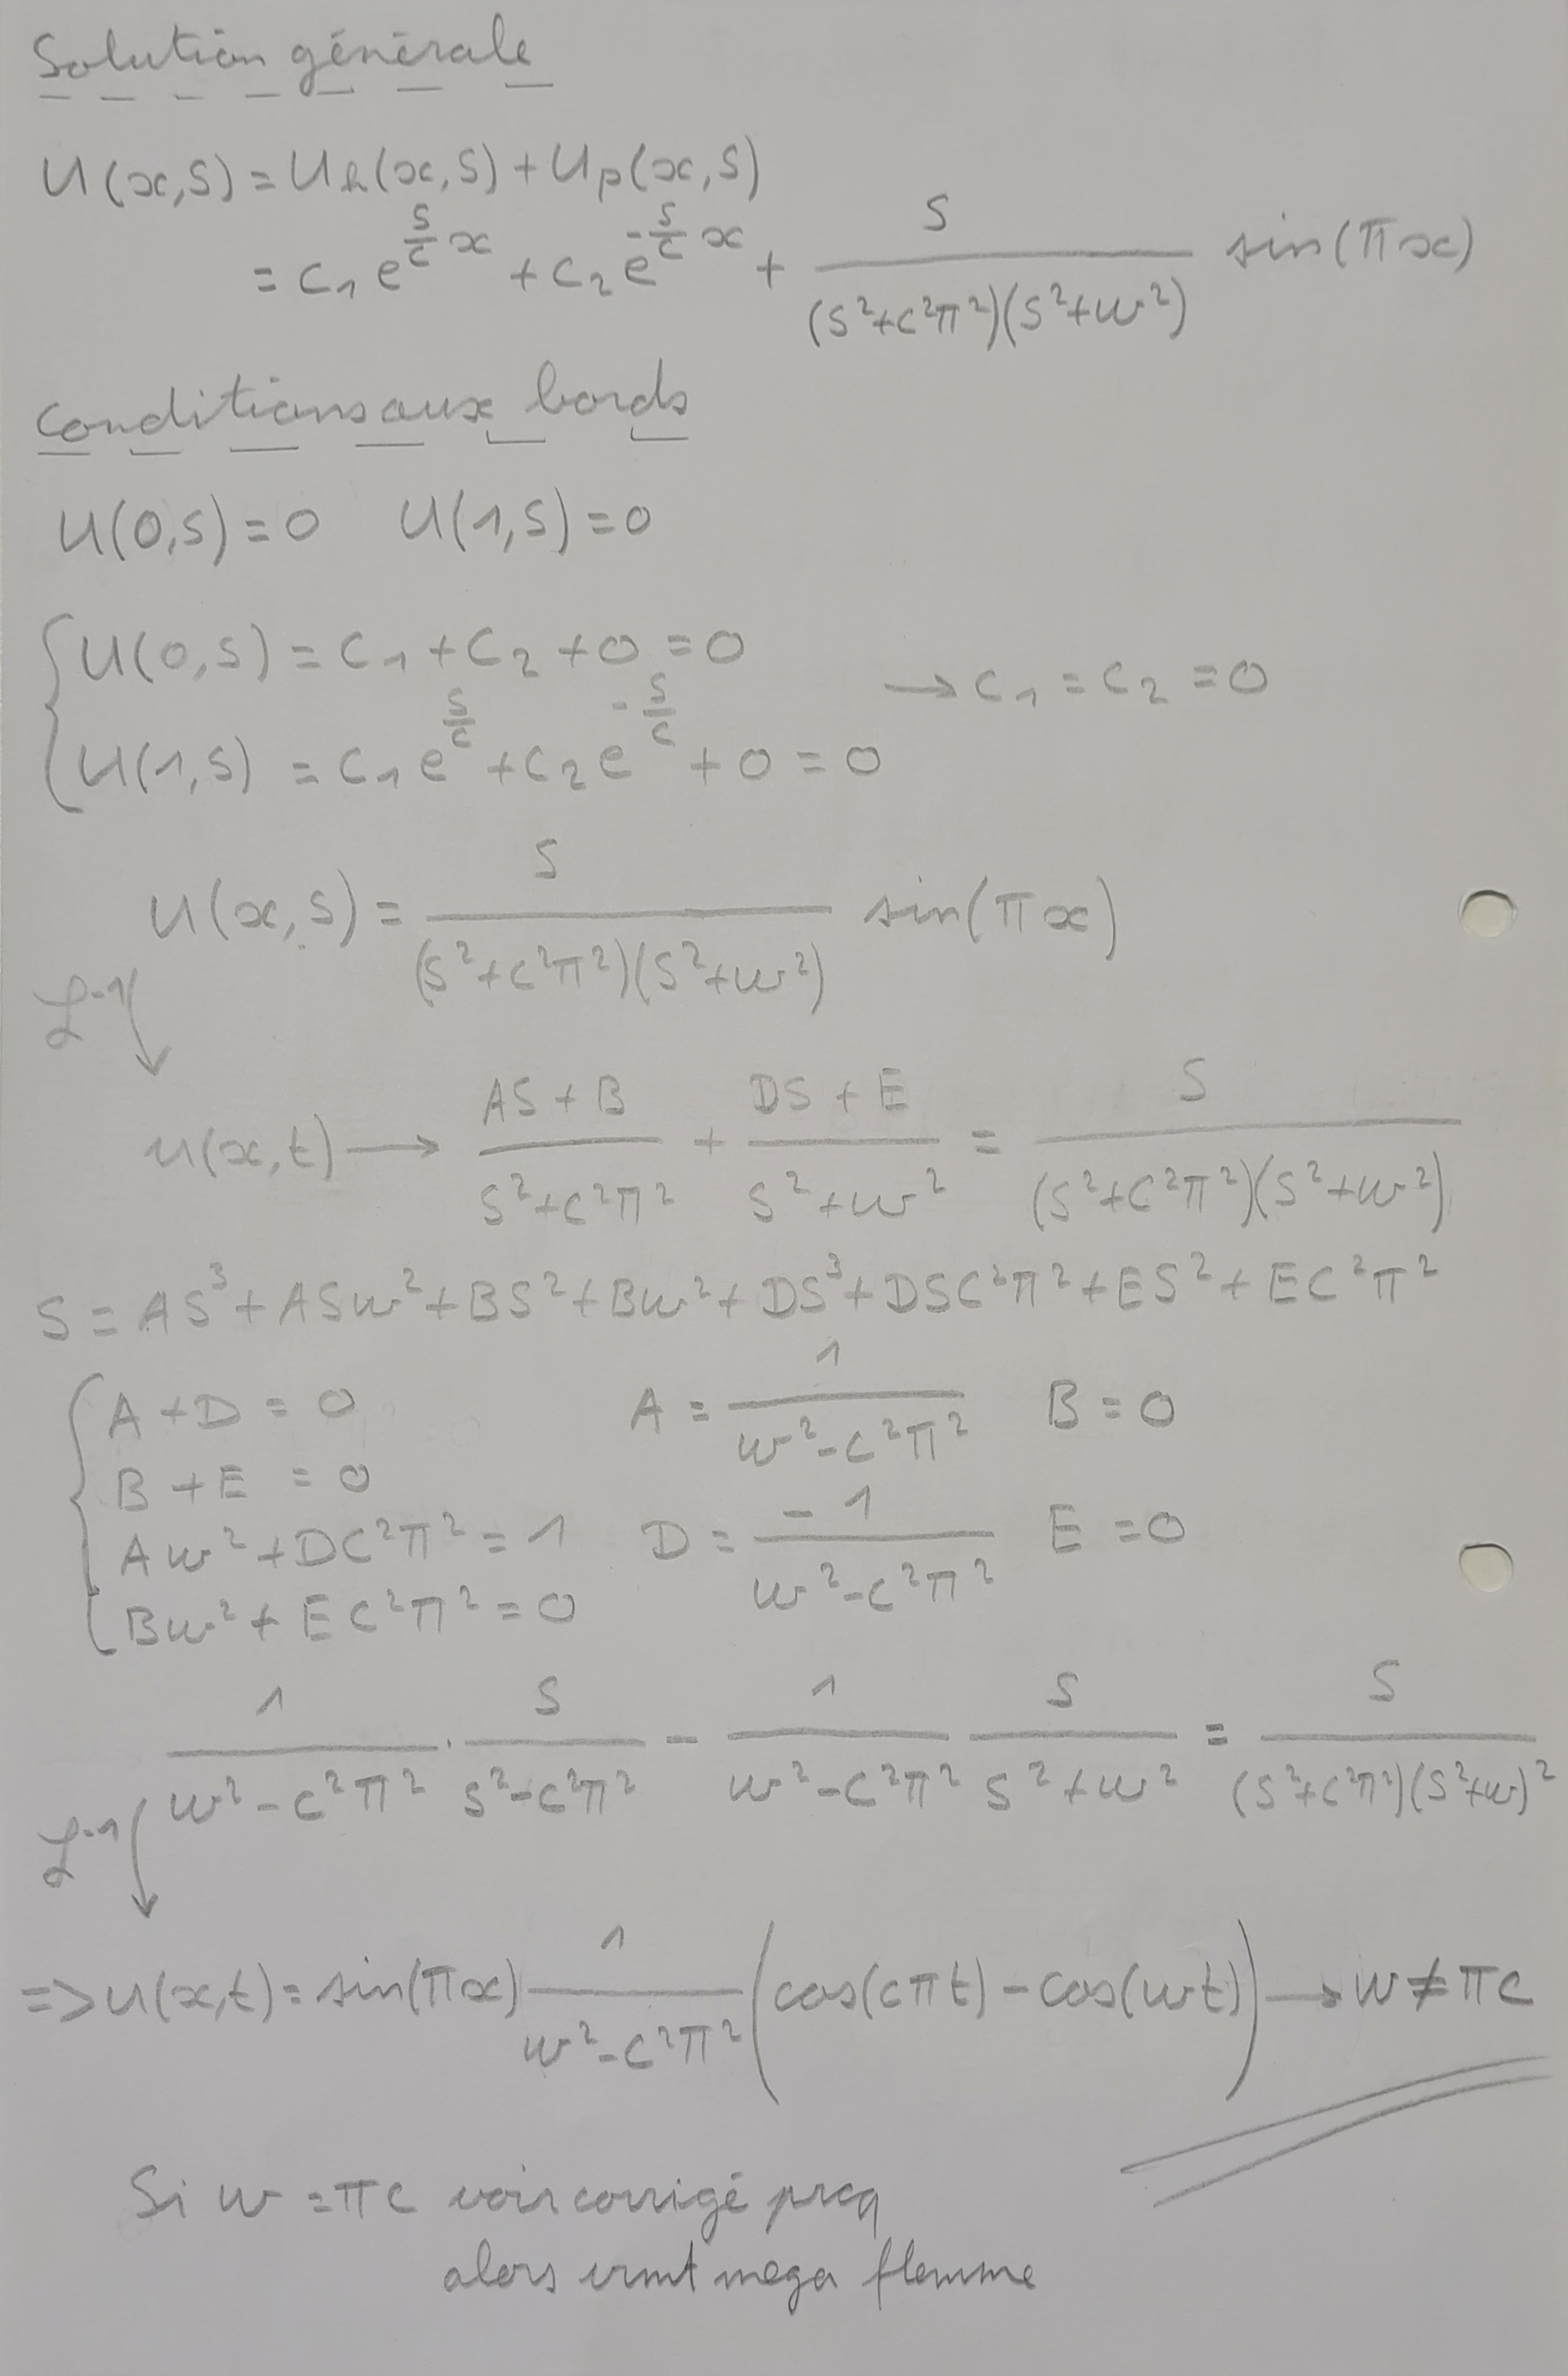 Solution générale
U(x,s) = U_h(x,s) + U_p(x,s)
= C_1 e^{\frac{s}{c}x} + C_2 e^{-\frac{s}{c}x} + \frac{s}{(s^2+c^2π^2)(s^2+w^2)} sin(πx)
Conditions aux bords
U(0,s) = 0 U(1,s) = 0
U(0,s) = C_1 + C_2 + 0 = 0 → C_1 = C_2 = 0
U(1,s) = C_1 e^{\frac{s}{c}} + C_2 e^{-\frac{s}{c}} + 0 = 0
U(x,s) = \frac{s}{(s^2+c^2π^2)(s^2+w^2)} sin(πx)
ℒ^{-1}
u(x,t) → \frac{As+B}{s^2+c^2π^2} + \frac{Ds+E}{s^2+w^2} = \frac{s}{(s^2+c^2π^2)(s^2+w^2)}
s = As^3 + Asw^2 + Bs^2 + Bw^2 + Ds^3 + Dsc^2π^2 + Es^2 + Ec^2π^2
A + D = 0 A = \frac{1}{w^2-c^2π^2} B = 0
B + E = 0
Aw^2 + Dc^2π^2 = 1 D = \frac{-1}{w^2-c^2π^2} E = 0
Bw^2 + Ec^2π^2 = 0
\frac{1}{w^2-c^2π^2} · \frac{s}{s^2-c^2π^2} - \frac{1}{w^2-c^2π^2} \frac{s}{s^2+w^2} = \frac{s}{(s^2+c^2π^2)(s^2+w)^2}
ℒ^{-1}
=> u(x,t) = sin(πx) \frac{1}{w^2-c^2π^2} (cos(cπt) - cos(wt)) → w ≠ πc
Si w = πc voir corrigé pcq
alors vrmt mega flemme